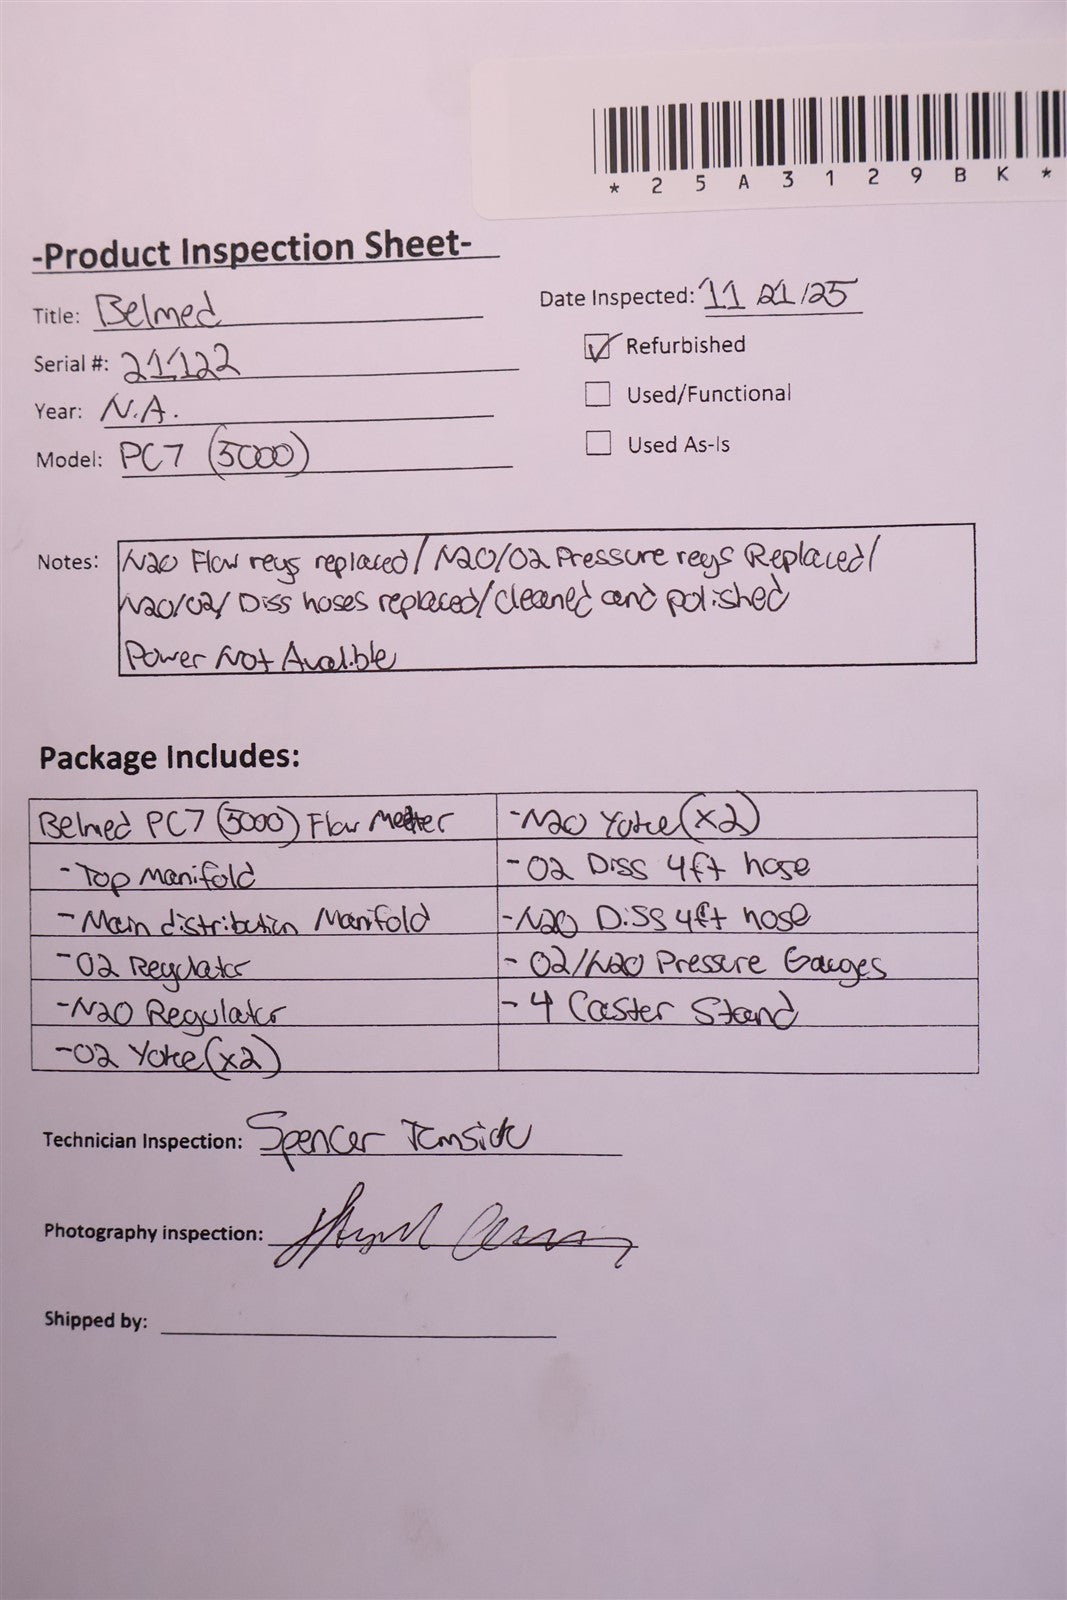 *25A3129BK*
-Product Inspection Sheet-
Title: Belmed
Date Inspected: 11 21/25
Serial #: 21122
Refurbished
Year: N.A.
Used/Functional
Model: PC7 (5000)
Used As-Is
Notes: N2O Flow regs replaced/ N2O/O2 Pressure regs Replaced/
N2O/O2/ Diss hoses replaced/ cleaned and polished
Power Not Avalible
Package Includes:
Belmed PC7 (5000) Flow Meter
-N2O Yoke (x2)
-Top Manifold
-O2 Diss 4ft hose
-Main distribution Manifold
-N2O Diss 4ft hose
-O2 Regulator
-O2/N2O Pressure Gauges
-N2O Regulator
-4 Caster Stand
-O2 Yoke (x2)
Technician Inspection: Spencer
Photography inspection:
Shipped by: